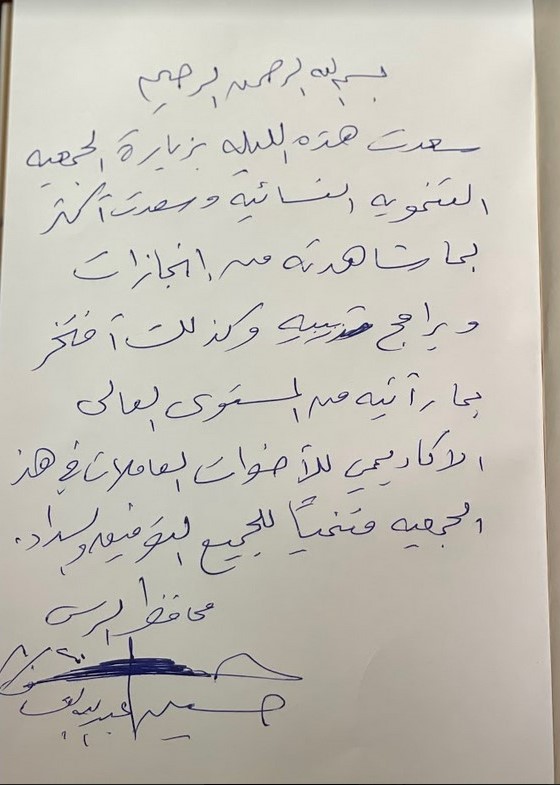 بسم الله الرحمن الرحيم
سعدت هذه الليله بزيارة الجمعيه
التنمويه النسائيه وسعدت أكثر
بما شاهدته من إنجازات
وبرامج تدريبيه وكذلك أفتخر
بما رأيته من المستوى العالى
الاكاديمي للأخوات العاملات في هذ
الجمعيه متمنياً للجميع التوفيق والسداد.
محافظ الرس
حسين عبدالله